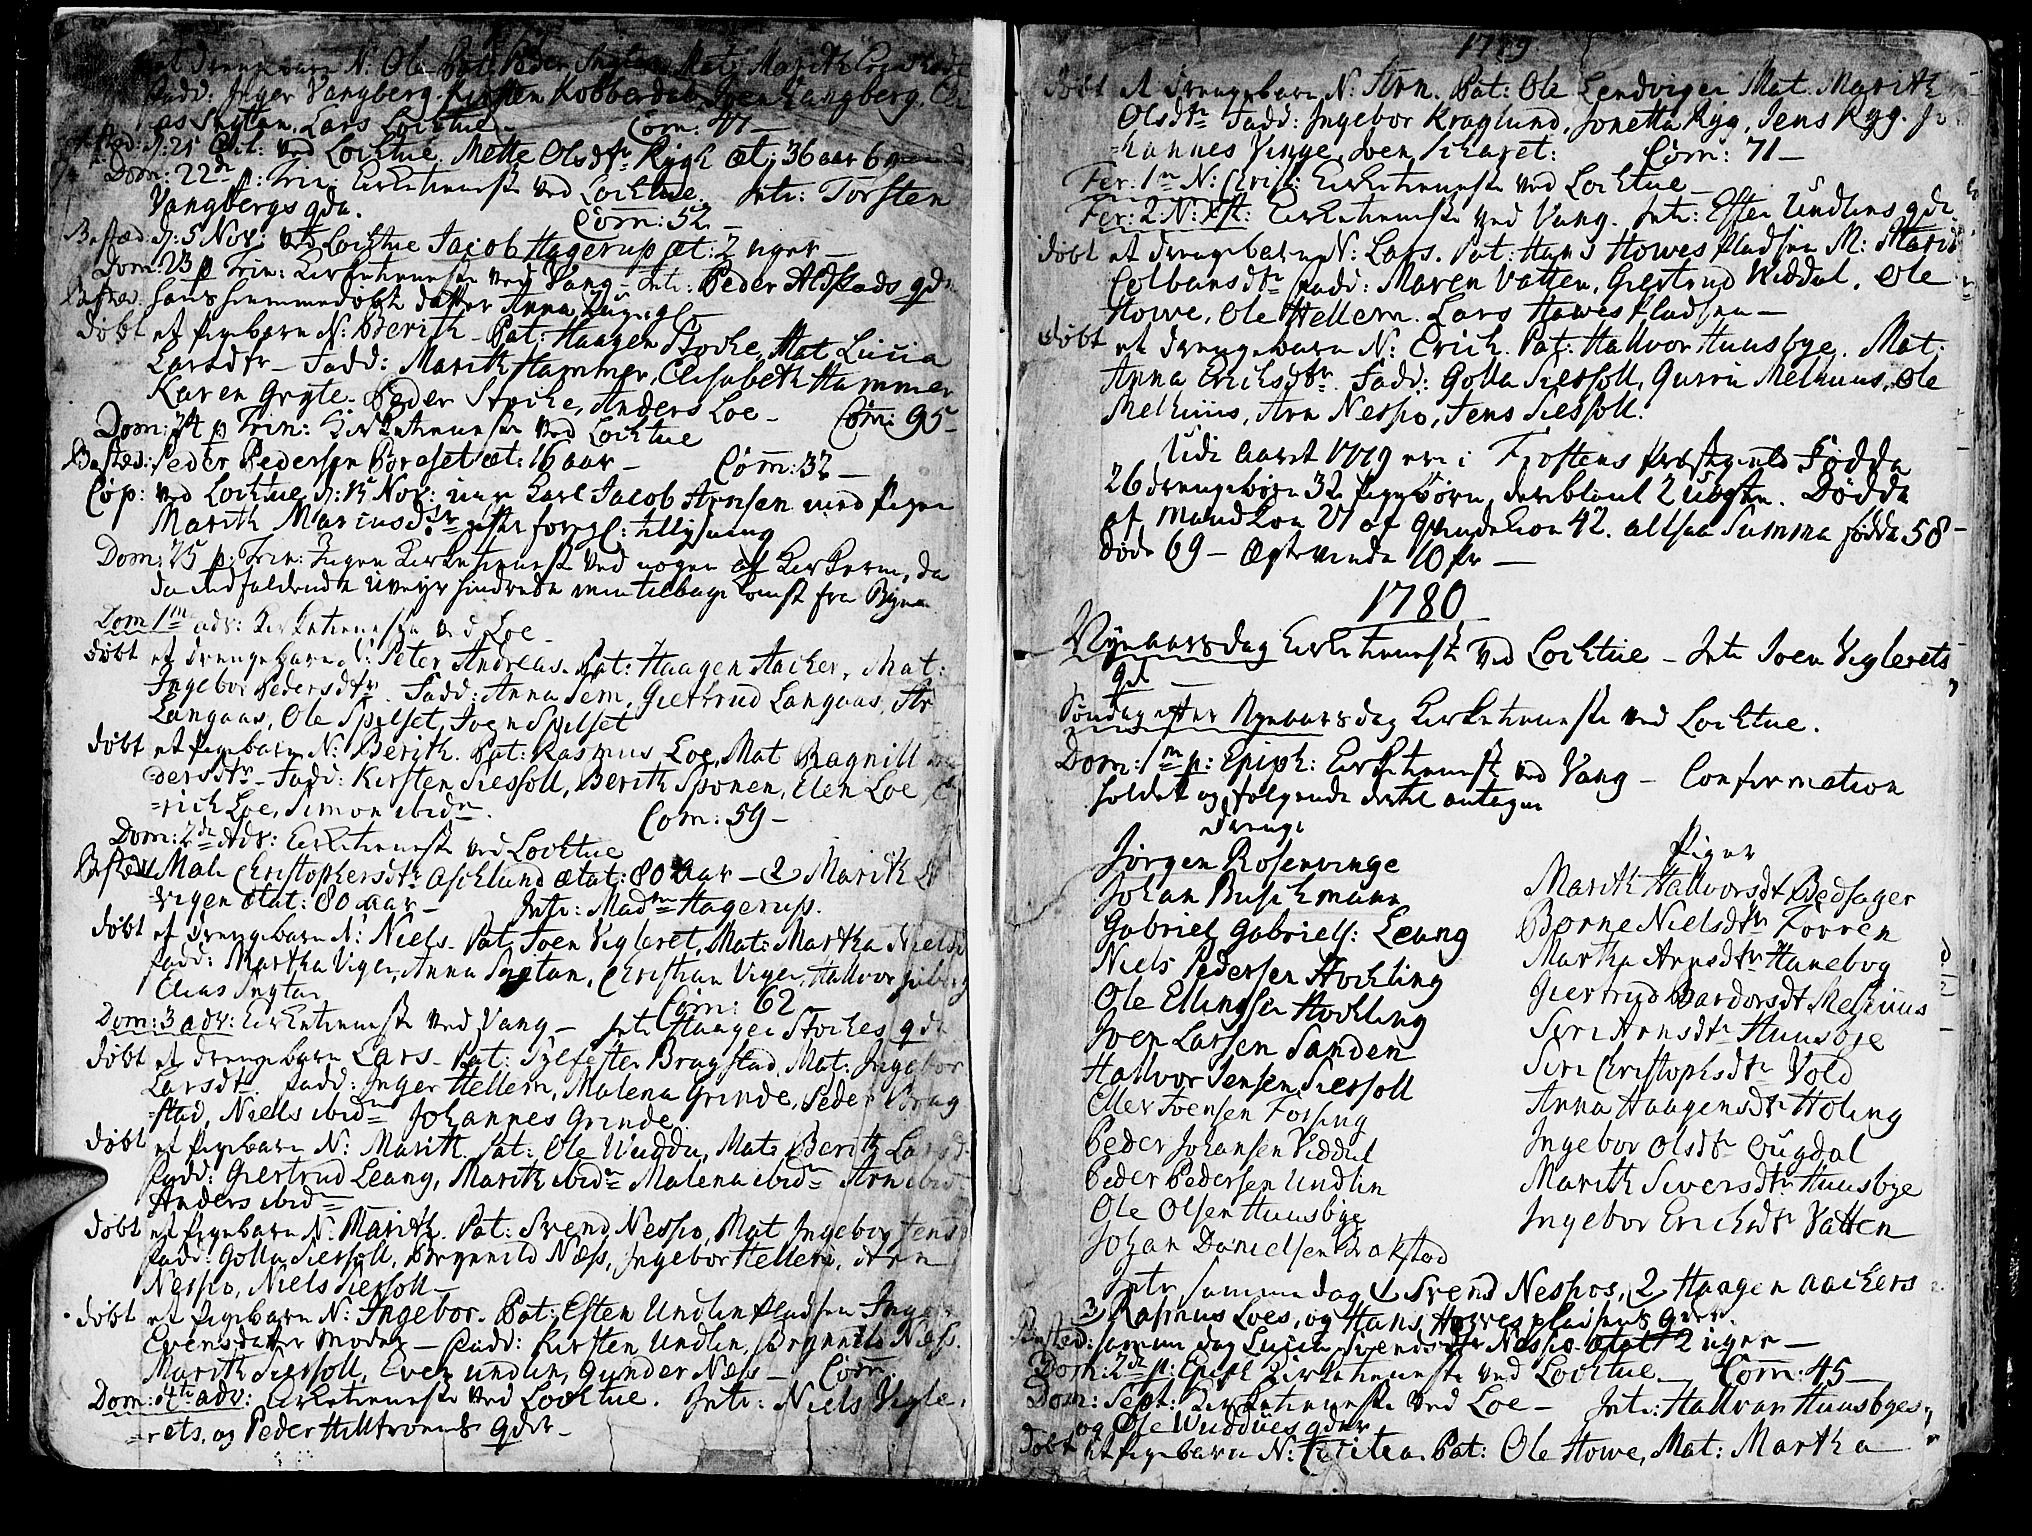 et drengebarn N: Ole Pat: Peder Ingtan Mat: Marith
Fadd: Inger Vangberg, Kirsten Kobberdal, Sven Vangberg,
as Ingtan, Lars Lochtue. Com: 47 –
ved Lochtue Mette Olsdtr Rygh æt: 36 aar 6
Dom: 22de p: Trin: Kirketienneste ved Lochtue. Intr: Torsten
Vangbergs qde. Com: 52 –
Begrav: d: 5 Nov: ved Lochtue Jacob Hagerup æt: 2 uger –
Dom: 23 p Trin: Kirketienneste ved Vang – Intr: Peder Aldstads qde
hans hiemmedøbte datter Anna
døbt et Pigebarn N: Berith. Pat: Haagen Stoche, Mat Lucia
Larsdtr – Fadd: Marith Hammer, Elisabeth Hammer
Karen Grÿte. Peder Stoche, Anders Loe – Com: 95 –
Dom: 24 p Trin: Kirketienneste ved Lochtue
Peder Pedersen Boraset æt: 16 aar – Com: 32 –
Cop: ved Lochtue d: 15 Nov: unge Karl Jacob Arnsen med Pigen
Marith Mariusdtr efter foregl: tillysning
Dom: 25 p: Trin: Ingen Kirketieneste ved nogen af Kirkerne, da
da indfaldende Uveyr hindrede min tilbage komst fra Byen
Dom 1m adv: Kirketienesten ved Loe –
døbt et drengebarn N: Peter Andreas. Pat: Haagen Aacher, Mat:
Ingebor Pedersdtr. Fadd: Anna Sem, Giertrud Langaas,
Langaas, Ole Spilset, Joen Spilset
døbt et Pigebarn N: Berith. Pat: Rasmus Loe, Mat Ragnill
dersdtr – Fadd: Kirsten Siessoll, Berith Sponen, Elen Loe
=rich Loe, Simon ibidm. Com: 59 –
Dom: 2de Adv: Kirketienneste ved Lochtue
Mali Christophersdtr Aschlund ætat: 80 aar – 2 Marith
=vigen ætat: 80 aar – Intr: Madm Hagerup.
døbt et drengebarn N: Niels. Pat: Joen Vigleret, Mat: Martha Nielsd
Fadd: Martha Viger, Anna Ingtan, Christian Viger, Hallvor
Elias Ingtan Com: 62 –
Dom: 3 adv: Kirketienneste ved Vang – Intr: Haagen Stoches qde
døbt et drengebarn Lars – Pat: Sylfester Bragstad, Mat: Ingebor
Larsdtr. Fadd: Inger Hellem, Malena Grinde, Peder Brag
=stad, Niels ibidm Johannes Grinde.
døbt et Pigebarn N: Marith. Pat: Ole Wuddu, Mat: Berith Larsd
Fadd: Giertrud Leang, Marith ibidm Malena ibidm Arn ibid
Anders ibidm
døbt et Pigebarn N: Marith. Pat: Svend Nespo, Mat Ingebor Jens
Fadd: Golla Siessoll, Brynnild Næss, Ingebor Hellem, Arn
Nespo, Niels Siessoll –
døbt et Pigebarn N: Ingebor. Pat: Esten Undlinpladsen Inge
Evensdatter Moder – Fadd: Kirsten Undlin, Brynnild Næss.
Marith Siessoll, Even Undlin, Gunder Næss – Com:
Dom: 4te adv: Kirketienneste ved Lochtue. Intr: Niels Vigle
=rets, og Peder Hilstrømes qder –
1779
døbt et drengebarn N: Arn. Pat: Ole Lendvigen Mat. Marith
Olsdtr Fadd: Ingebor Kraglund, Jonetta Ryg, Jens Ryg. Jo
=hannes Vinge, Sven Scharet: Com: 71 –
Fer: 1m N: Christ: Kirketienneste ved Lochtue –
Fer: 2 N: Xst: Kirketienneste ved Vang. Intr: Esten Undlins qde.
døbt et drengebarn N: Lars. Pat: Hans Howespladsen M: Marit
Colbansdtr Fadd: Maren Vatten, Giertrud Viddal, Ole
Howe, Ole Hellem. Lars Howespladsen –
døbt et drengebarn N: Erich. Pat: Hallvor Huusbye. Mat:
Anna Erichsdtr. Fadd: Golla Siessoll, Gurru Melhuus, Ole
Melhuus, Arn Nespo, Jens Siessoll.
Udi Aaret 1779 ere i Frostens Præstegield Fødda
26 drengebørn 32 Pigebørn, deriblant 2 uægte. Dødda
af Mandkøn 27 af Qvindekiøn 42. altsaa Summa fødda 58 –
døde 69 – Ægteviede 10 Pr –
1780
Nÿeaarsdag Kirketieneste ved Lochtue – Intr: Joen Viglerets
qde –
Søndag efter Nyeaarsdag Kirketienneste ved Lochtue.
Dom: 1m p: Epiph: Kirketieneste ved Vang – Confirmation
holdet og følgende dertil antagen
drenge
Jørgen Rosenvinge
Johan Buschmann
Gabriel Gabriels: Leang
Niels Pedersen Hochling
Ole Ellingsen Hochling
Sven Larsen Sanden
Hallvor Jensen Siessoll
Eller Svensen Forsing
Peder Johansen Viddal
Peder Pedersen Undlin
Ole Olsen Huusbye
Johan Danielsen Brakstad
Piger
Marith Hallvorsdt Bedsager
Børne Nielsdtr Forren
Martha Arnsdtr Hanebog
Giertrud Bardorsdt Melhuus
Siri Arnsdtr Huusbye
Siri Christophsdtr Vold
Anna Haagensdtr Holing
Ingebor Olsdtr Dugdal
Marith Siversdtr Huusbye
Ingebor Erichsdtr Vatten
Intr samme dag 1 Svend Nespos, 2 Haagen Aachers
3 Rasmus Loes, og Hans Howespladsens qder.
samme dag Lucia Svendsdtr Nespo ætat 2 uger –
Dom: 2de p: Epiph Kirketienneste ved Lochtue – Com: 45 –
Dom: Sept: Kirketienneste ved Loe – Intr: Hallvor Huusbyes
og Ole Wuddues qder
døbt et Pigebarn N: Cicilia. Pat: Ole Howe, Mat: Martha